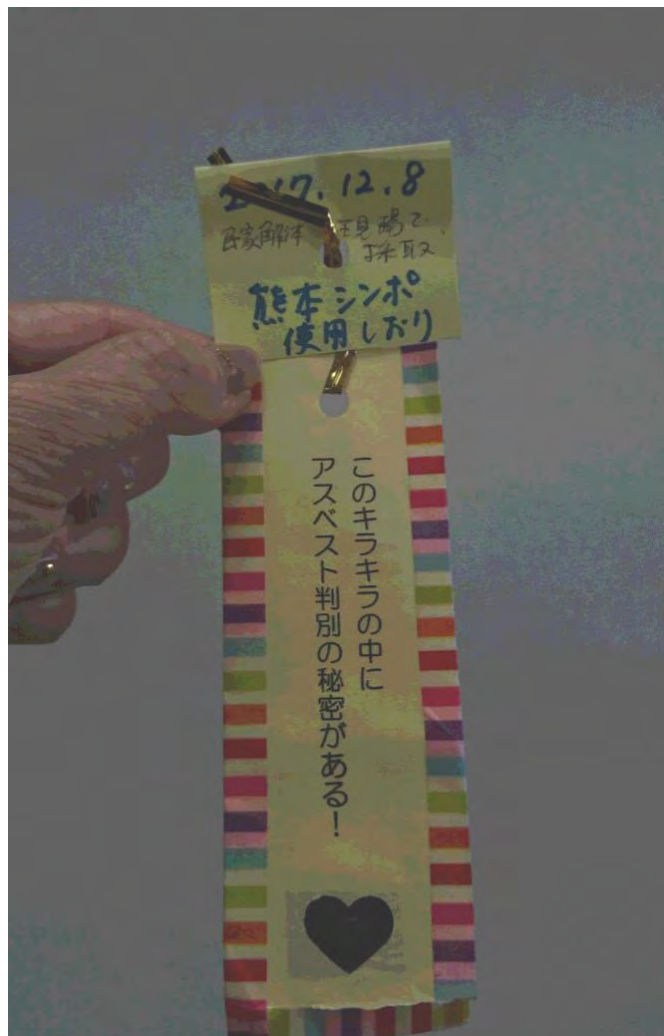 2017.12.8
民家解体 現場で
採取
熊本シンポ
使用しおり
このキラキラの中に
アスベスト判別の秘密がある!